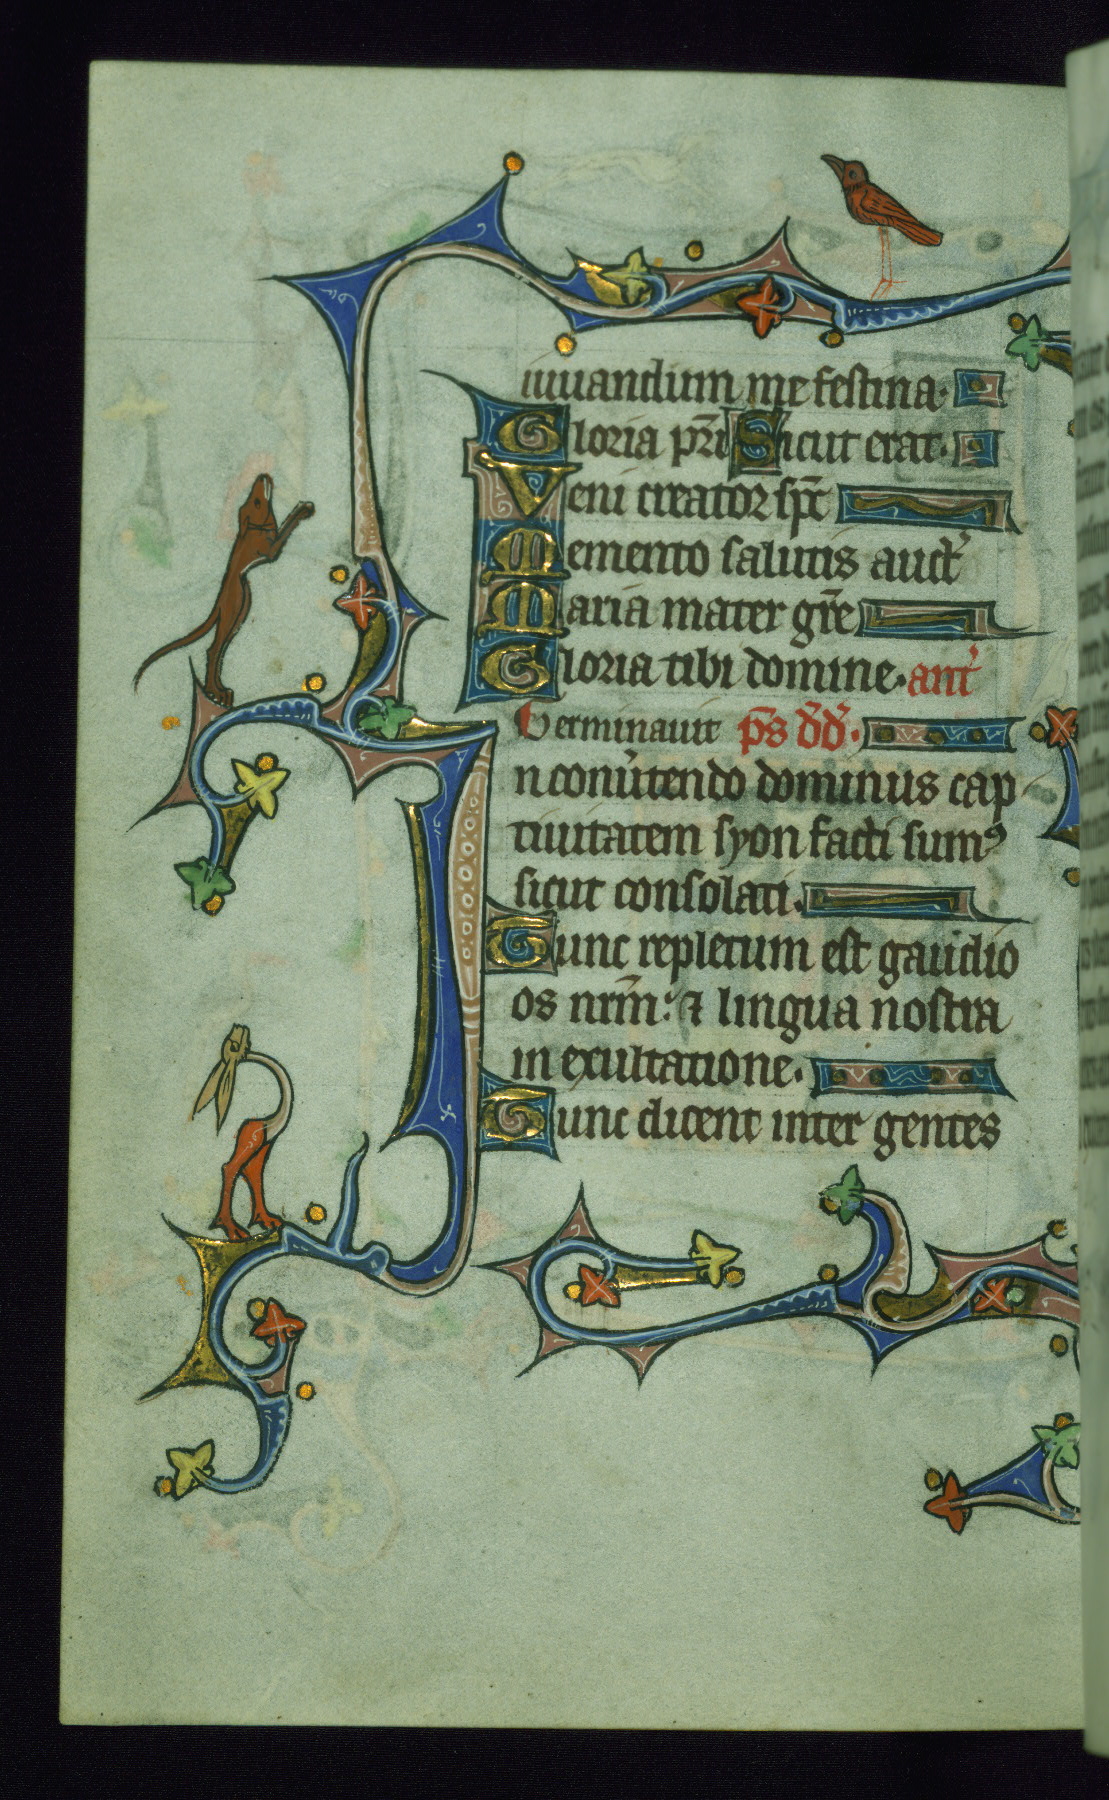 iuuandum me festina.
Gloria pr̄i Sicut erat.
Veni creator sp̄c
Memento salutis auct᾿
Maria mater gr̄e
Gloria tibi domine. ant᾿
Germinauit p̄s d̄d̄.
In conu᾿tendo dominus cap
tiuitatem syon facti sumꝰ
sicut consolati.
Tunc repletum est gaudio
os nrm̄: ⁊ lingua nostra
in exultatione.
Tunc dicent inter gentes